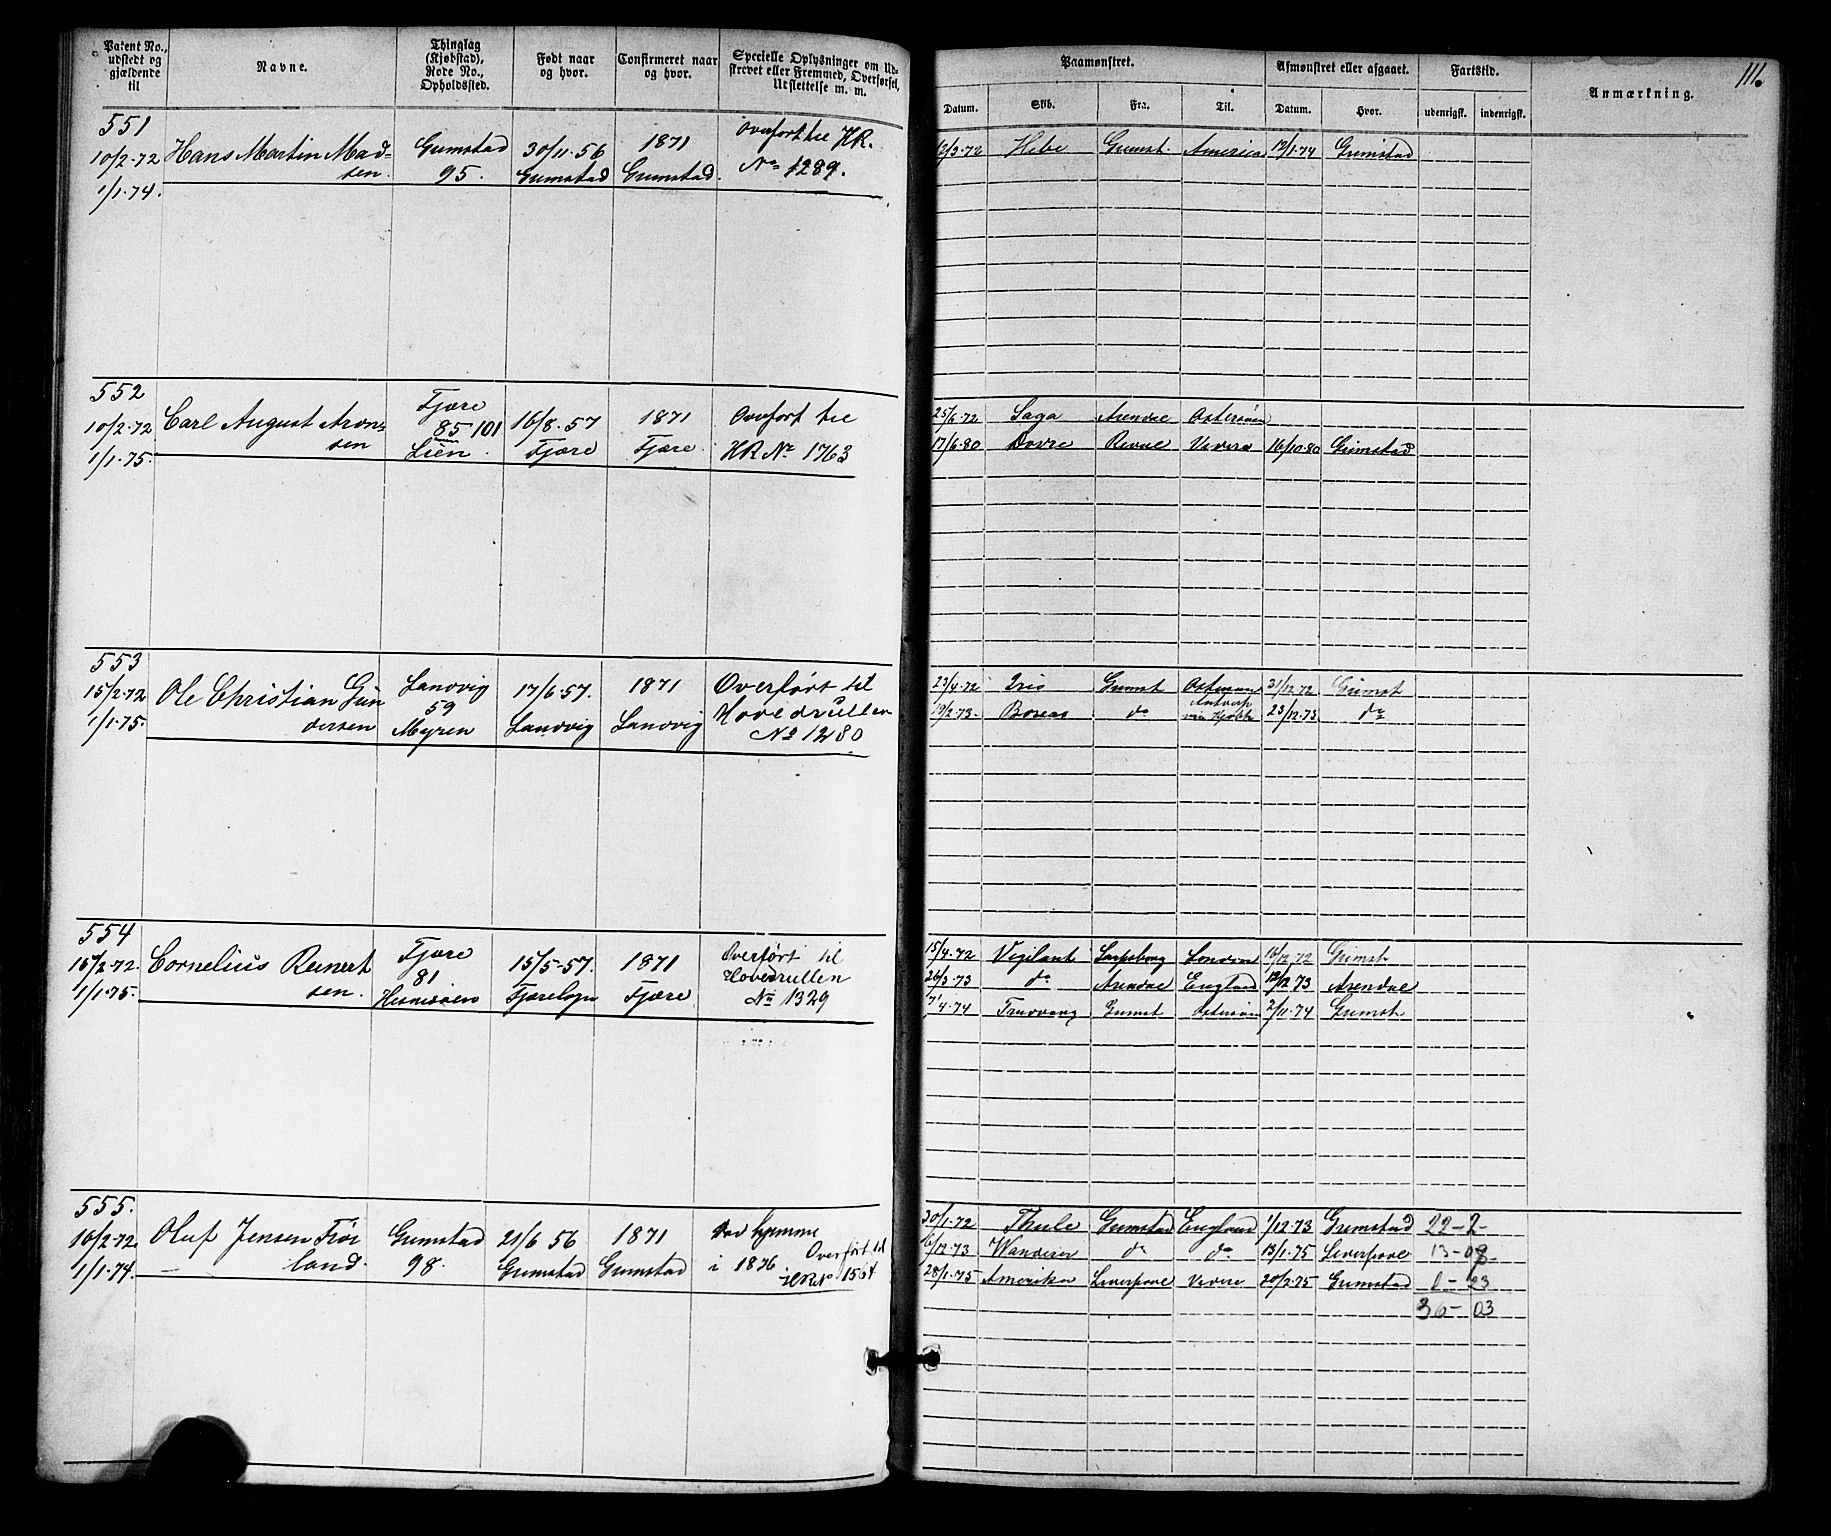 Patent No., udstedt og gjældende til
Navne.
Thinglag (Kjøbstad), Rode No., Opholdssted.
Født naar og hvor.
Confirmeret naar og hvor.
Specielle Oplysninger om Udskrevet eller Fremmed, Overførsel, Udslettelse m. m.
Paamønstret.
Afmønstret eller afgaaet.
Fartstid.
Anmærkning.
111
Datum.
Skib.
Fra.
Til.
Datum.
Hvor.
udenrigsk.
indenrigsk.
551
10/2-72
1/1-74.
Hans Martin Mad-
sen.
Grimstad
95.
30/11-56
Grimstad
1871
Grimstad.
Overført til HR.
No 1289.
12/3-72 Hebe Grimst. America 12/1-74 Grimstad
552
10/2-72
1/1-75.
Carl August Aron-
sen
Fjære
85 101
Lien.
16/8-57
Fjære
1871
Fjære.
Overført til
HR No 1763
25/6-72 Saga Arendal Østersøen
17/6-80 Dovre 16/10-80 Grimstad
553
15/2-72
1/1-75.
Ole Christian Gun
dersen
Landvig
59
Myren
17/6-57.
Landvig
1871
Landvig
Overført til
Hovedrullen
No 1280
23/4-72 Iris Grimst 31/12-72 Grimst
19/2-73. Boreas do 23/12-73 do
554
1/1-75.
Cornelius Reinert
sen.
Fjære
81
Hesnesøen
15/5-57.
1871
Fjære
Overført til
Hovedrullen
No 1329
15/4-72 Vigilant Sarpsborg London Grimst
26/3-73 do Arendal England 12/12 73 Arendal
Grimst Østersøen 2/11-74 Grimst
555.
16/2-72.
1/1-74.
Oluf Jensen Frø
land.
Grimstad
98.
21/6 56
Grimstad
1871
Grimstad
Var hjemme
i 1876. Overført til
HR No 1564
30/1-72 Thule Grimstad England 1/12-73 Grimstad 22-2-
6/12-73 Wanderer do do 13/1-75 Liverpool
28/1-75 Amerika Liverpool 20/2-75 Grimstad 0-23
36-03